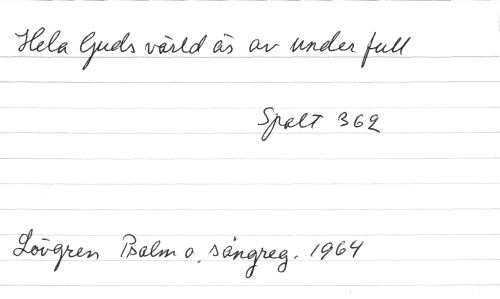 Hela Guds värld är av under full
Spalt 362
Lövgren Psalm o. sångreg. 1964